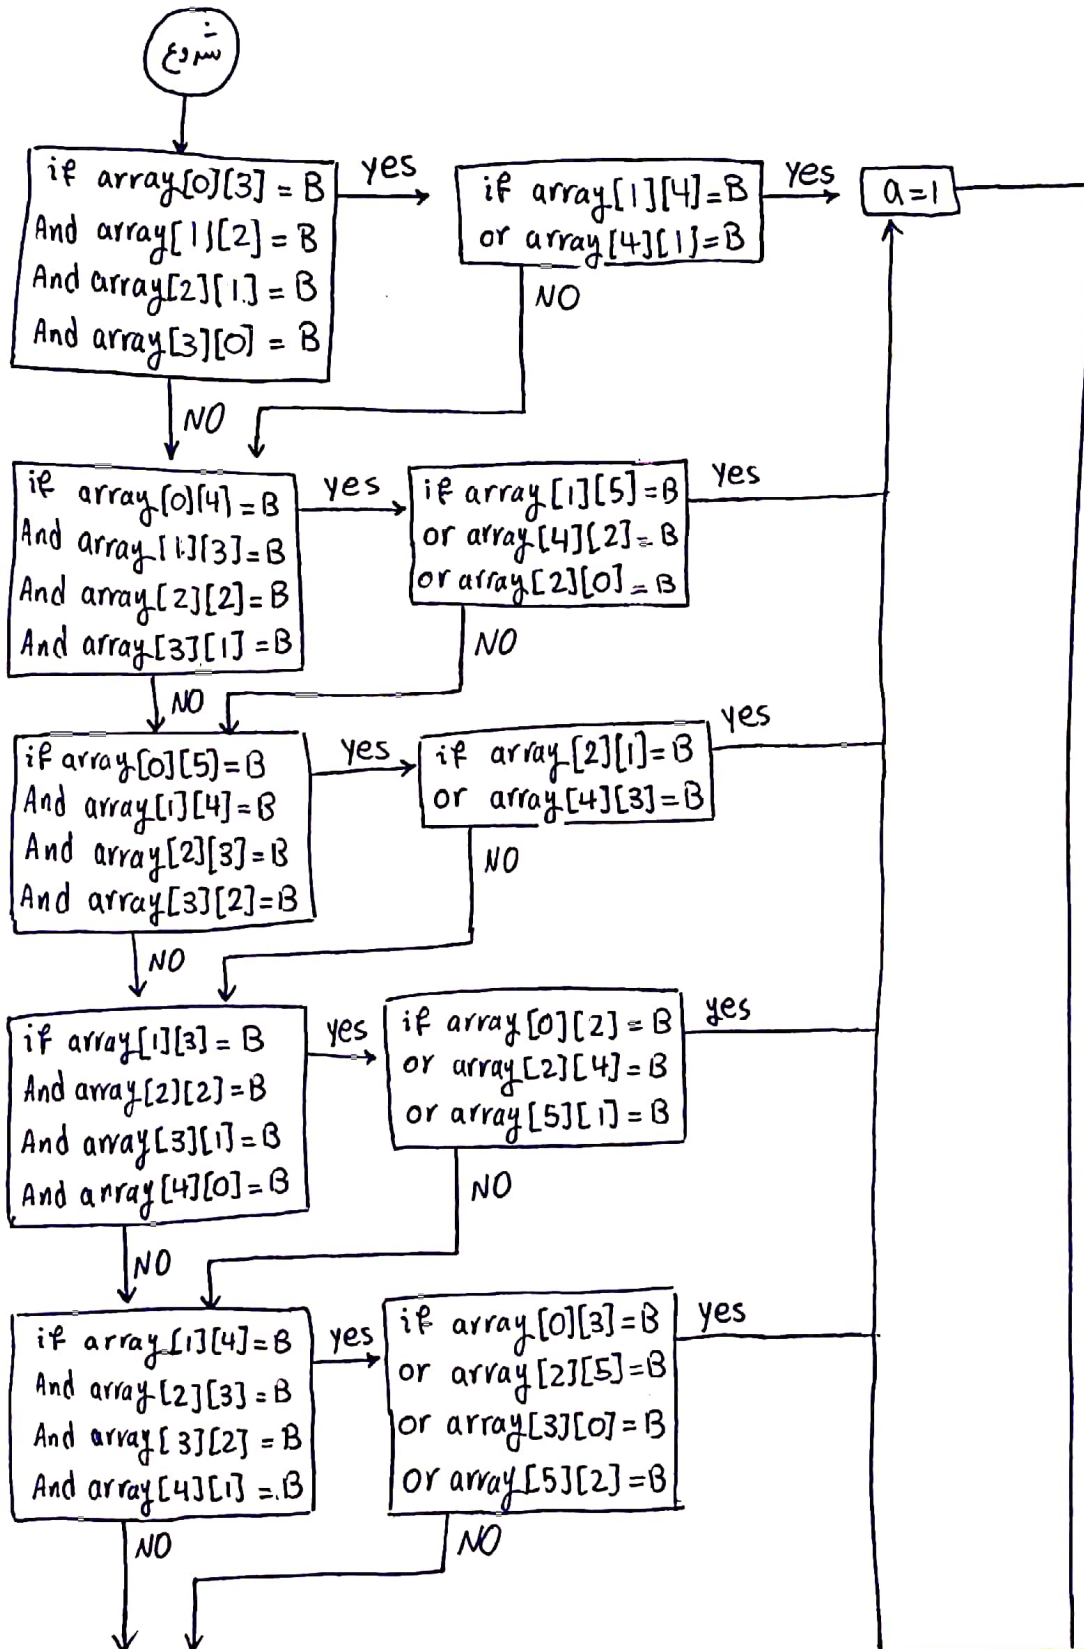 شروع
if array[0][3] = B
And array[1][2] = B
And array[2][1] = B
And array[3][0] = B
yes
if array[1][4]=B
or array[4][1]=B
yes
a=1
NO
NO
if array[0][4]=B
And array[1][3]=B
And array[2][2]=B
And array[3][1]=B
yes
if array[1][5]=B
or array[4][2]=B
or array[2][0]=B
yes
NO
NO
if array[0][5]=B
And array[1][4]=B
And array[2][3]=B
And array[3][2]=B
yes
if array[2][1]=B
or array[4][3]=B
yes
NO
NO
if array[1][3]=B
And array[2][2]=B
And array[3][1]=B
And array[4][0]=B
yes
if array[0][2]=B
or array[2][4]=B
or array[5][1]=B
yes
NO
NO
if array[1][4]=B
And array[2][3]=B
And array[3][2]=B
And array[4][1]=B
yes
if array[0][3]=B
or array[2][5]=B
or array[3][0]=B
or array[5][2]=B
yes
NO
NO